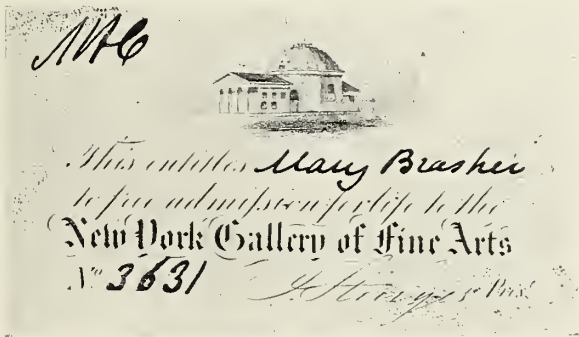 This entitles Mary Brasher
to free admission for life to the
New York Gallery of Fine Arts
No 3631
J. Sturges Pres.